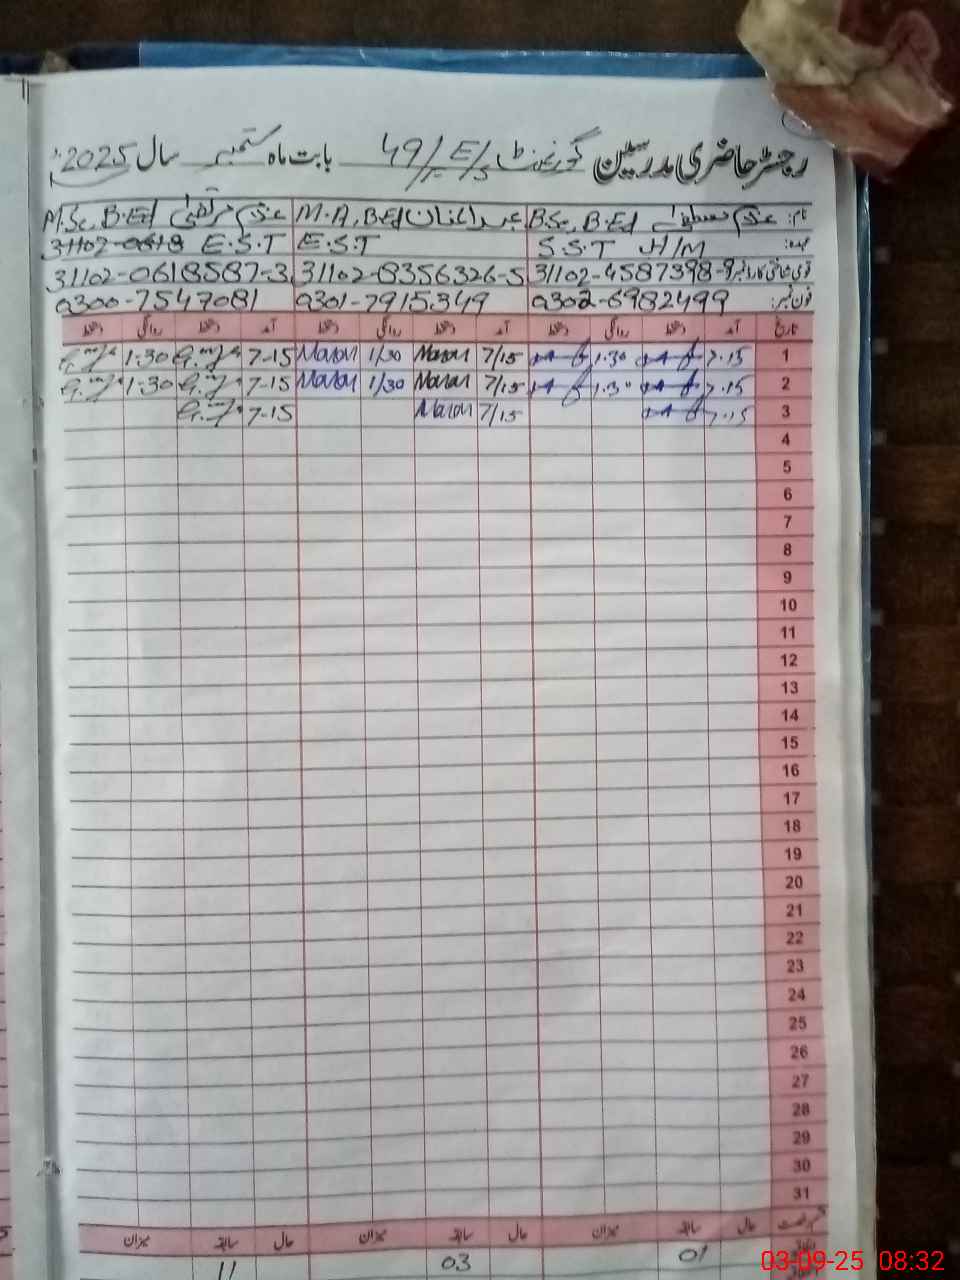 رجسٹر حاضری مدرسین گورنمنٹ 49/E/S بابت ماہ ستمبر سال 2025ء
نام: غلام مصطفیٰ B.Sc, B.Ed عبدالحنان M.A, B.Ed غلام مرتضیٰ M.Sc, B.Ed
عہدہ: S.S.T H/M E.S.T E.S.T 31102-0618
قومی شناختی کارڈ نمبر 31102-4587398-9 31102-8356326-5 31102-0618587-3
فون نمبر: 0302-6982499 0301-7915349 0300-7547081
تاریخ آمد دستخط روانگی دستخط آمد دستخط روانگی دستخط آمد دستخط روانگی دستخط
1 7.15 1.30 7/15 1/30 7-15 1-30
2 7.15 1.30 7/15 1/30 7-15 1-30
3 7.15 7/15 7-15
4
5
6
7
8
9
10
11
12
13
14
15
16
17
18
19
20
21
22
23
24
25
26
27
28
29
30
31
حال سابقہ میزان حال سابقہ میزان حال سابقہ میزان
01 03 11
03-09-25 08:32